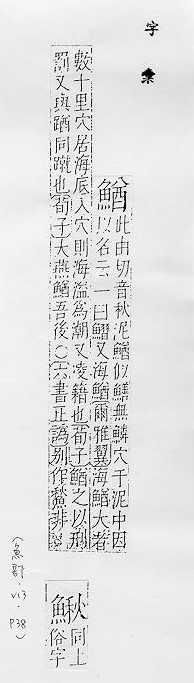 字彙
鰌此由切音秋泥鰌似鱔無鱗穴于泥中因
以名云一曰鰼又海鰌爾雅翼海鰌大者
數十里穴居海底入穴則海溢為潮又凌籍也荀子鰌之以刑
罰又與蹢同蹴也荀子大燕鰌吾後○六書正譌別作鰲非
鰍同上
俗字
(魚部．V13．P38)